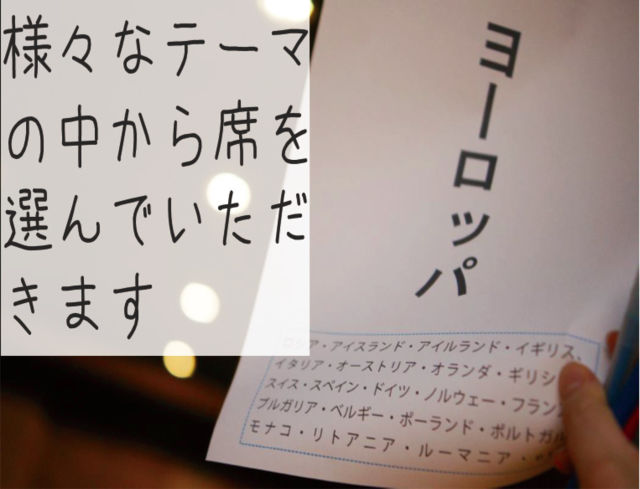 様々なテーマ
の中から席を
選んでいただ
きます
ヨーロッパ
ロシア・アイスランド・アイルランド・イギリス、
イタリア・オーストリア・オランダ・ギリシ
スイス・スペイン・ドイツ・ノルウェー・フラン
ブルガリア・ベルギー・ポーランド・ポルトガル
モナコ・リトアニア・ルーマニア・